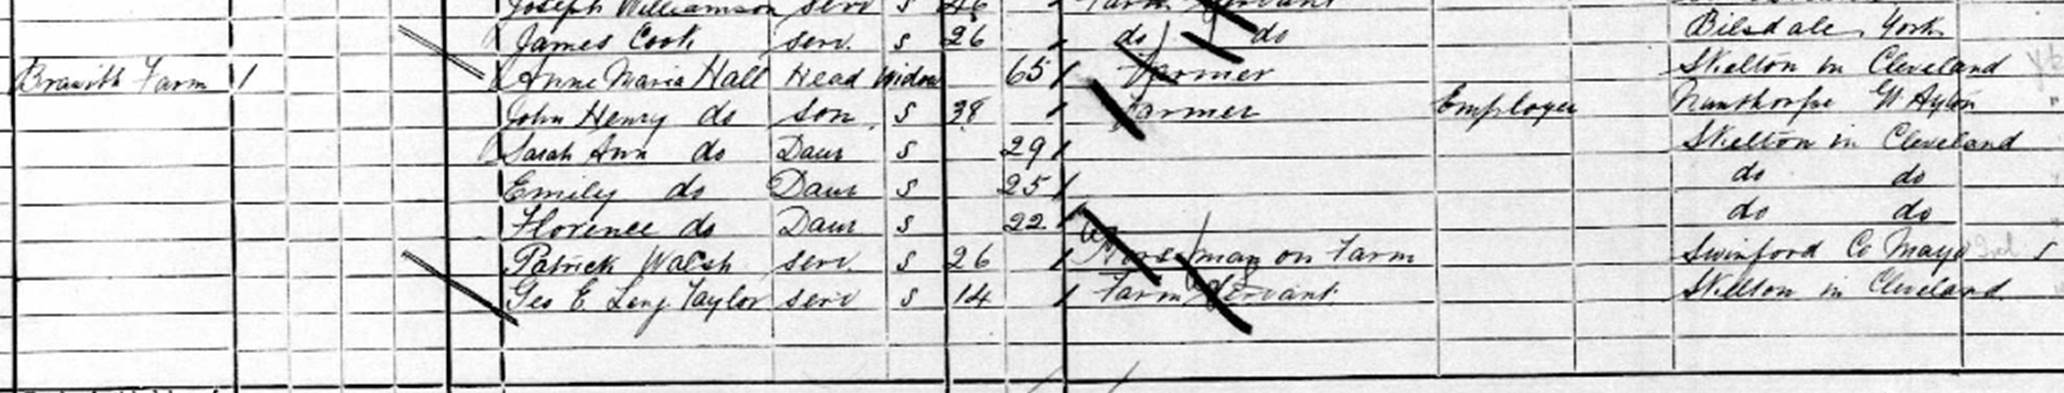 Joseph Williamson serv S 46 Farm Servant
James Cook serv. S 26 do do Bilsdale York
Brawith Farm 1 Anne Maria Hall Head Widow 65 Farmer Skelton in Cleveland
John Henry do son S 38 Farmer Employer Nunthorpe Gt Ayton
Sarah Ann do Daur S 29 Skelton in Cleveland
Emily do Daur S 25 do do
Florence do Daur S 22 do do
Patrick Walsh serv. S 26 Horseman on Farm Swinford Co Mayo
Geo E. Leng Taylor serv S 14 Farm Servant Skelton in Cleveland